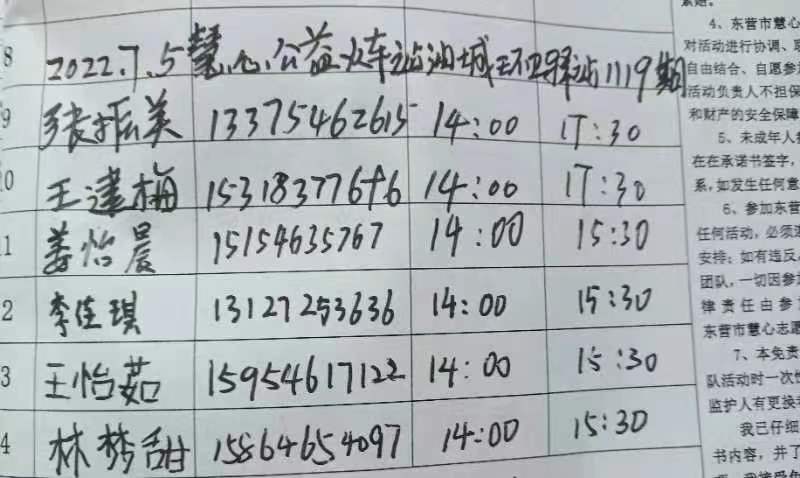 8 2022.7.5慧心公益火车站油城环卫驿站1119期
9 张振英 13375462615 14:00 17:30
0 王建梅 15318377676 14:00 17:30
1 姜怡晨 15154635767 14:00 15:30
2 李佳琪 13127253636 14:00 15:30
3 王怡茹 15954617122 14:00 15:30
4 林梦甜 15864654097 14:00 15:30
4、东营市慧心
对活动进行协调、联
自由结合、自愿参加
活动负责人不担保
和财产的安全保障
5、未成年人参
在在承诺书签字,
系,如发生任何意
6、参加东营
任何活动,必须遵
安排;如有违反,
团队,一切因参加
律责任由参
东营市慧心志愿
7、本免责
队活动时一次性
监护人有更换
我已仔细
书内容,并了